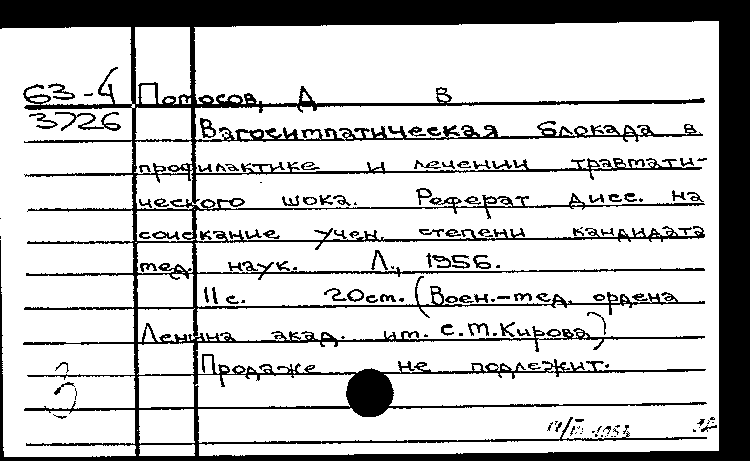 63-4 Потосов, Д В
3726 Вагосимпатическая блокада в
профилактике и лечении травмати-
ческого шока. Реферат дисс. на
соискание учен. степени кандидата
мед. наук. Л., 1956.
11 с. 20см. (Воен.-мед. ордена
Ленина акад. им. С.М.Кирова)
Продаже не подлежит.